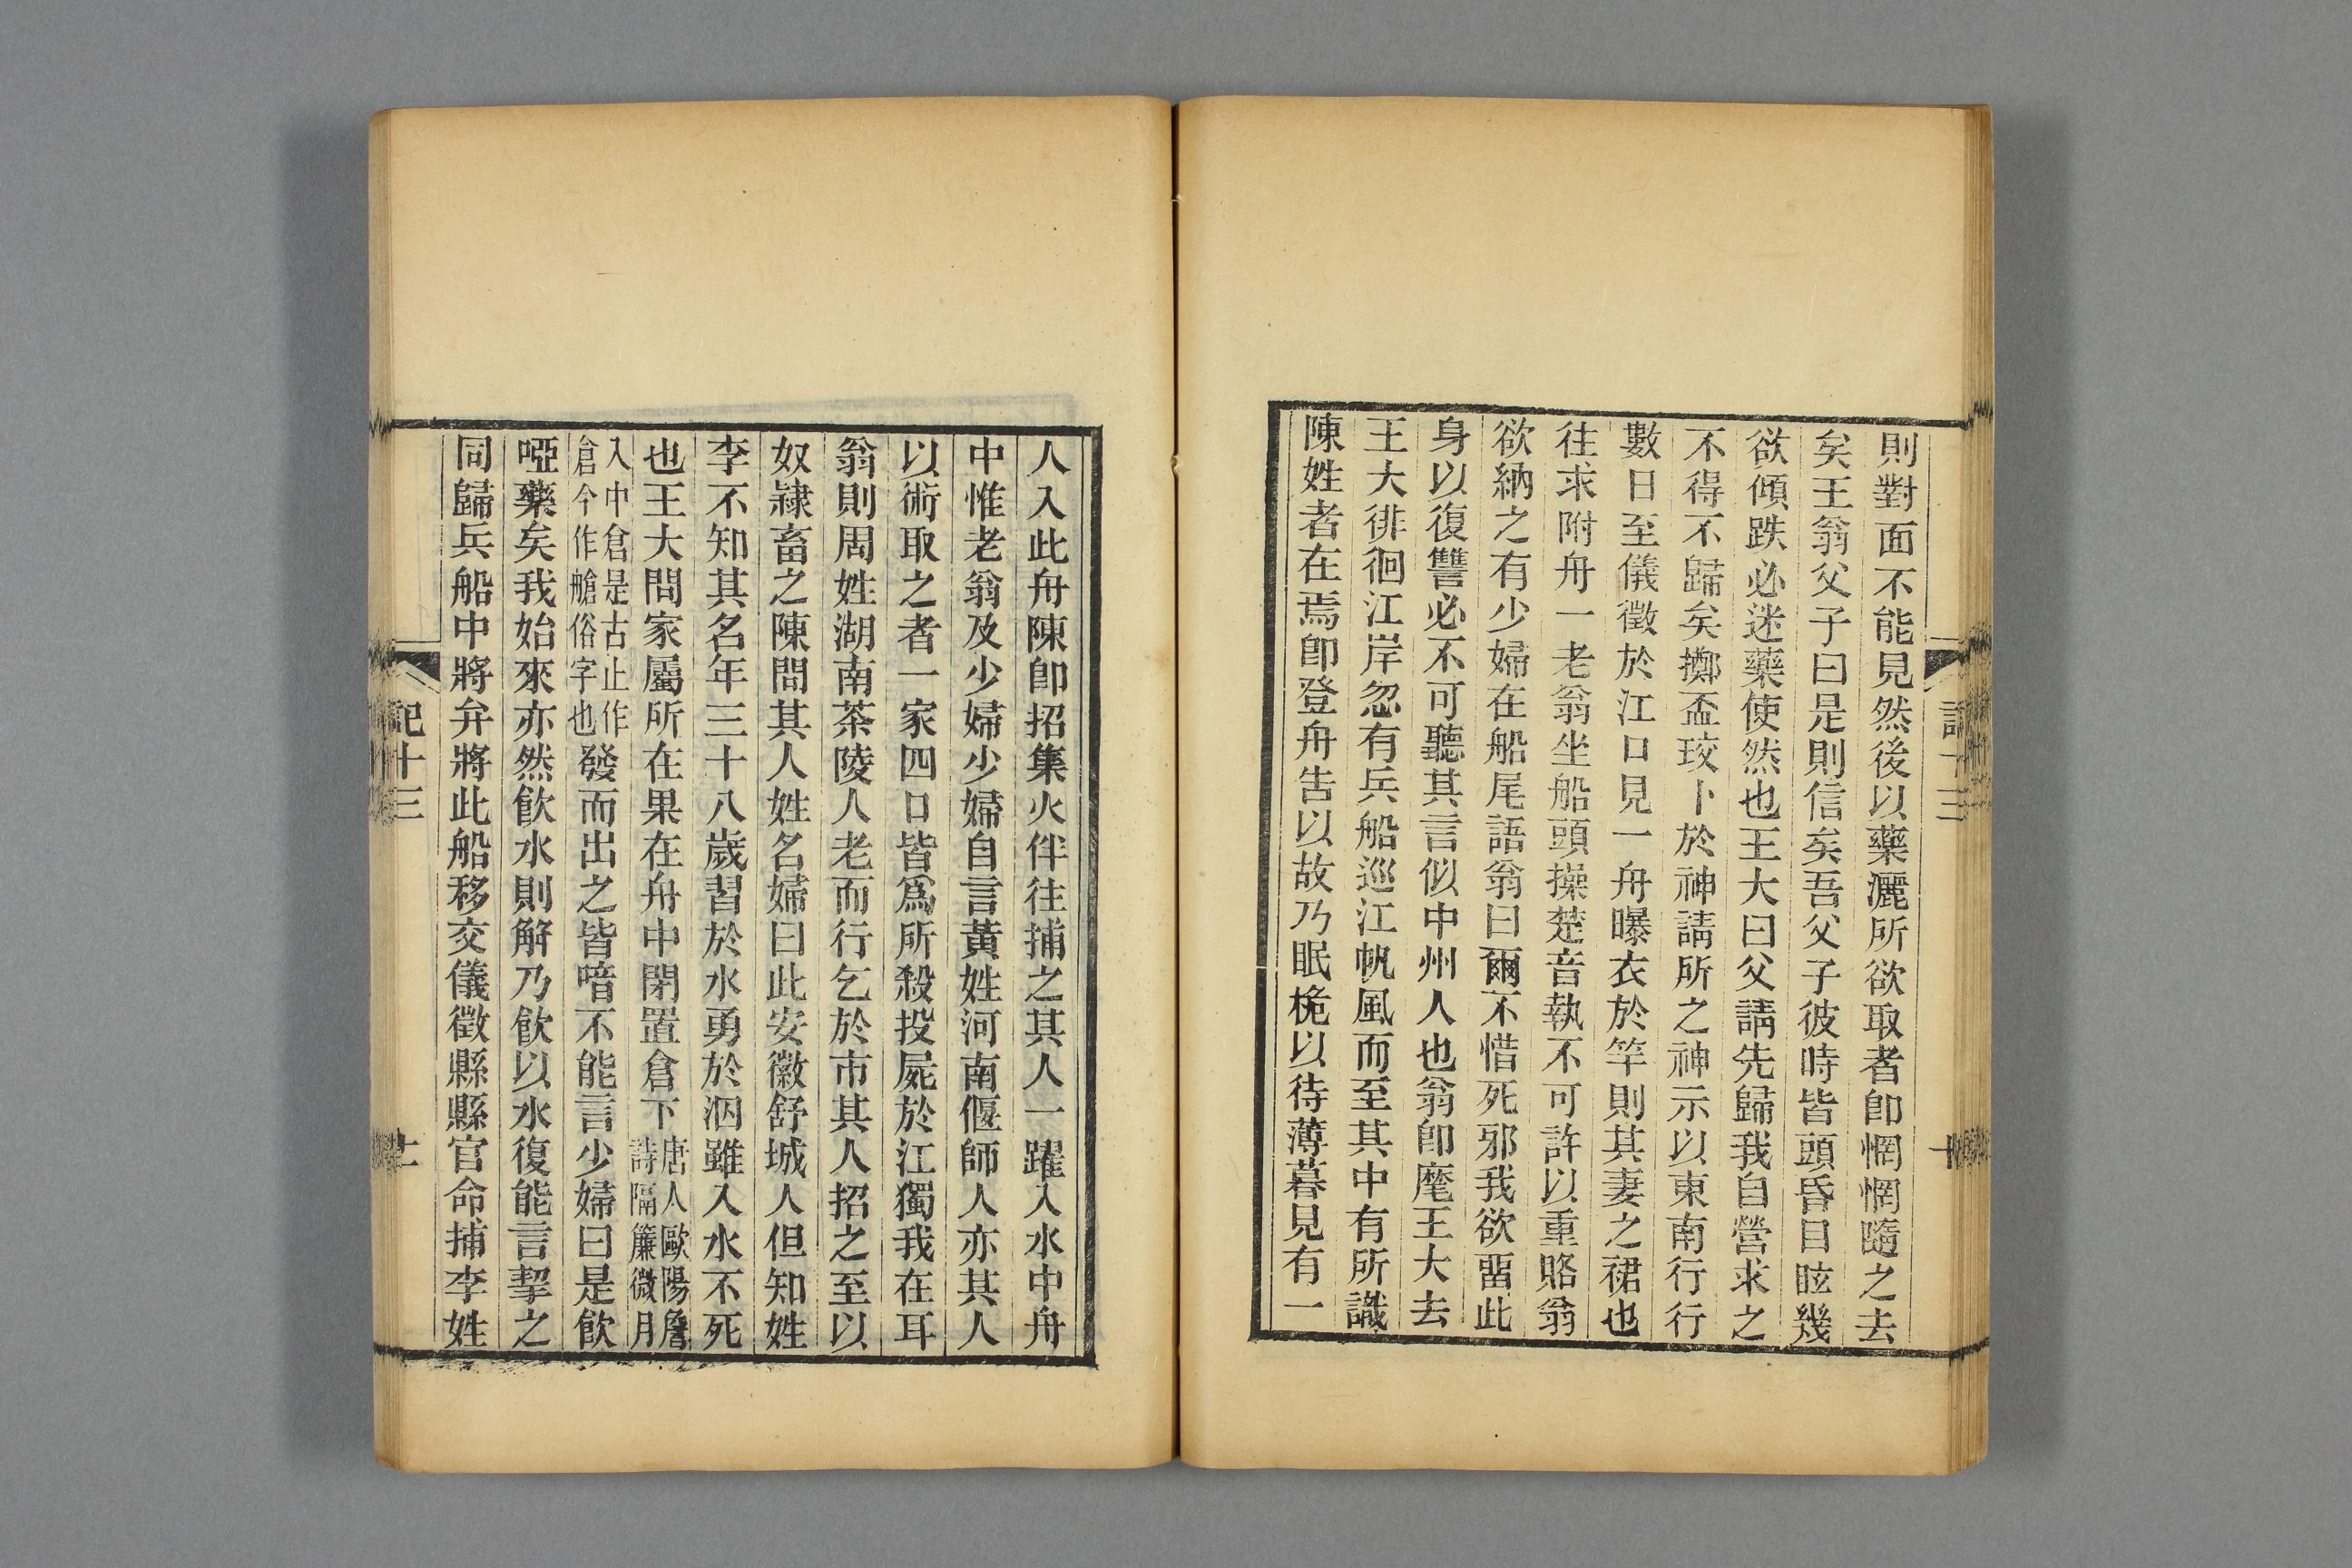 則對面不能見然後以藥灑所欲取者卽惘惘隨之去
矣王翁父子曰是則信矣吾父子彼時皆頭昏目眩幾
欲傾跌必迷藥使然也王大曰父請先歸我自營求之
不得不歸矣擲盃珓卜於神請所之神示以東南行行
數日至儀徵於江口見一舟曝衣於竿則其妻之裙也
往求附舟一老翁坐船頭操楚音執不可許以重賂翁
欲納之有少婦在船尾語翁曰爾不惜死邪我欲畱此
身以復讐必不可聽其言似中州人也翁卽麾王大去
王大徘徊江岸忽有兵船巡江帆風而至其中有所識
陳姓者在焉卽登舟告以故乃眠桅以待薄暮見有一
人入此舟陳卽招集火伴往捕之其人一躍入水中舟
中惟老翁及少婦少婦自言黃姓河南偃師人亦其人
以術取之者一家四口皆爲所殺投屍於江獨我在耳
翁則周姓湖南茶陵人老而行乞於市其人招之至以
奴隷畜之陳問其人姓名婦曰此安徽舒城人但知姓
李不知其名年三十八歲習於水勇於泅雖入水不死
也王大問家屬所在果在舟中閉置倉下唐人歐陽詹詩隔簾微月
入中倉是古止作倉今作艙俗字也發而出之皆喑不能言少婦曰是飮
啞藥矣我始來亦然飮水則解乃飮以水復能言挈之
同歸兵船中將弁將此船移交儀徵縣縣官命捕李姓
記十三